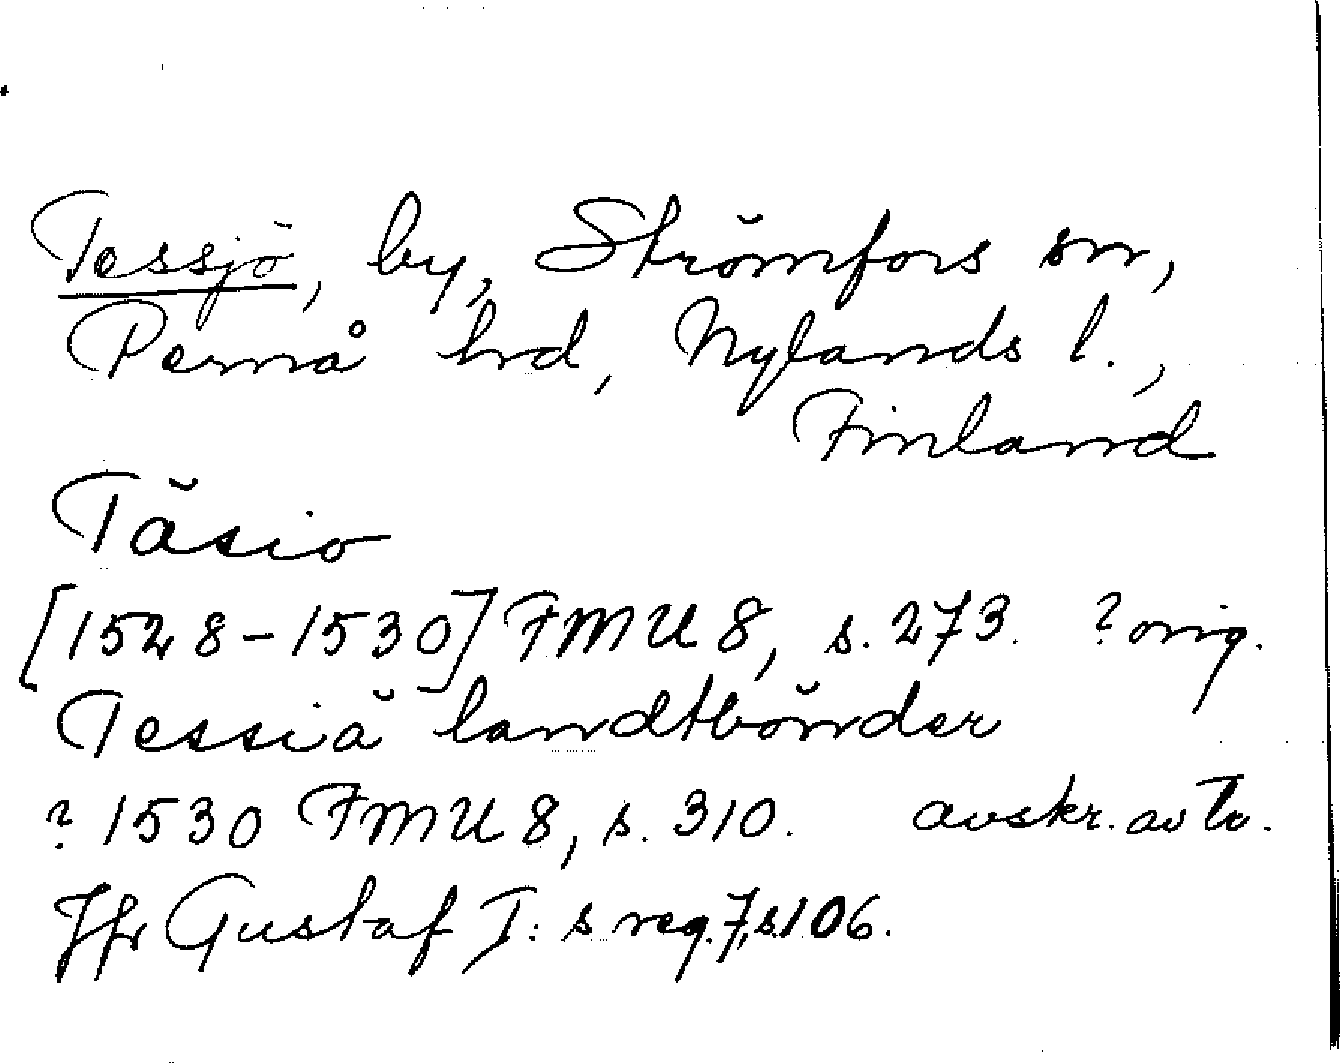 Tessjö, by, Strömfors sn,
Pernå hrd, Nylands l.,
Finland
Täsio
[1528-1530] FMU 8, s. 273. ? orig.
Tessiä landtbönder
? 1530 FMU 8, s. 310. avskr. av Tr.
Jfr Gustaf I:s reg. 7, s. 106.